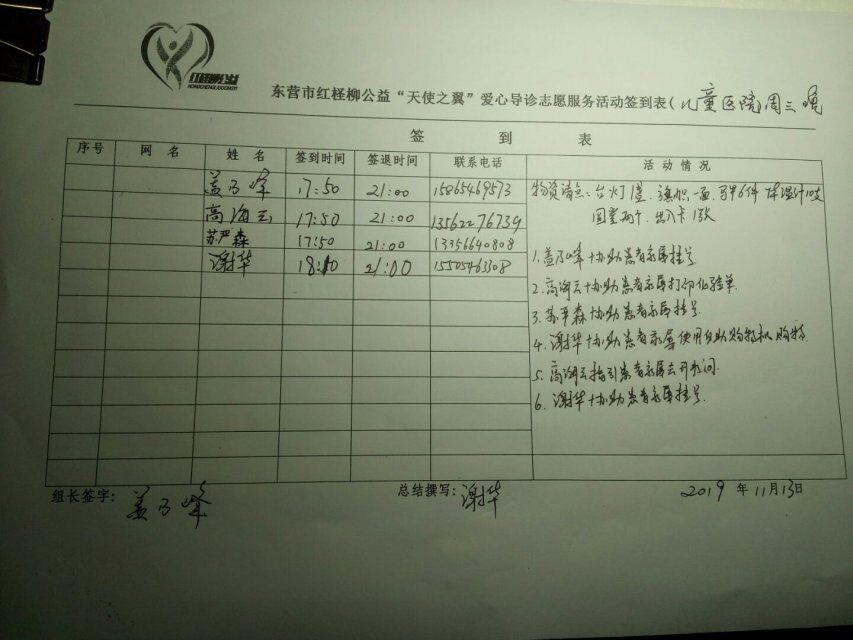 红柽柳公益
HONGCHENGLIUGONGYI
东营市红柽柳公益“天使之翼”爱心导诊志愿服务活动签到表(儿童医院周三晚
签 到 表
序号 网 名 姓 名 签到时间 签退时间 联系电话 活 动 情 况
盖乃峰 17:50 21:00 15865469573
高海云 17:50 21:00 13562276739
苏严森 17:50 21:00 13356640808
谢华 18:10 21:00 15505463308
物资清点:台灯1屋、旗帜一面、马甲6件 体温计10支
圆凳两个、出入卡1张
1.盖乃峰协助患者家属挂号
2.高海云协助患者家属打印化验单.
3.苏严森协助患者家属挂号.
4.谢华协助患者家属使用自助购物机购物.
5.高海云指引患者家属去开水间.
6.谢华协助患者家属挂号.
组长签字: 盖乃峰 总结撰写: 谢华 2019 年 11月13日